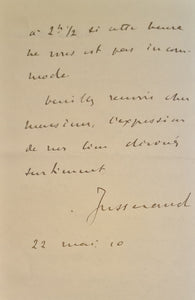 à 2h 1/2 si cette heure
ne vous est pas incom-
mode
Veuillez recevoir cher
monsieur, l'expression
de mes bien dévoués
sentiment
Jusserand
22 mai 10